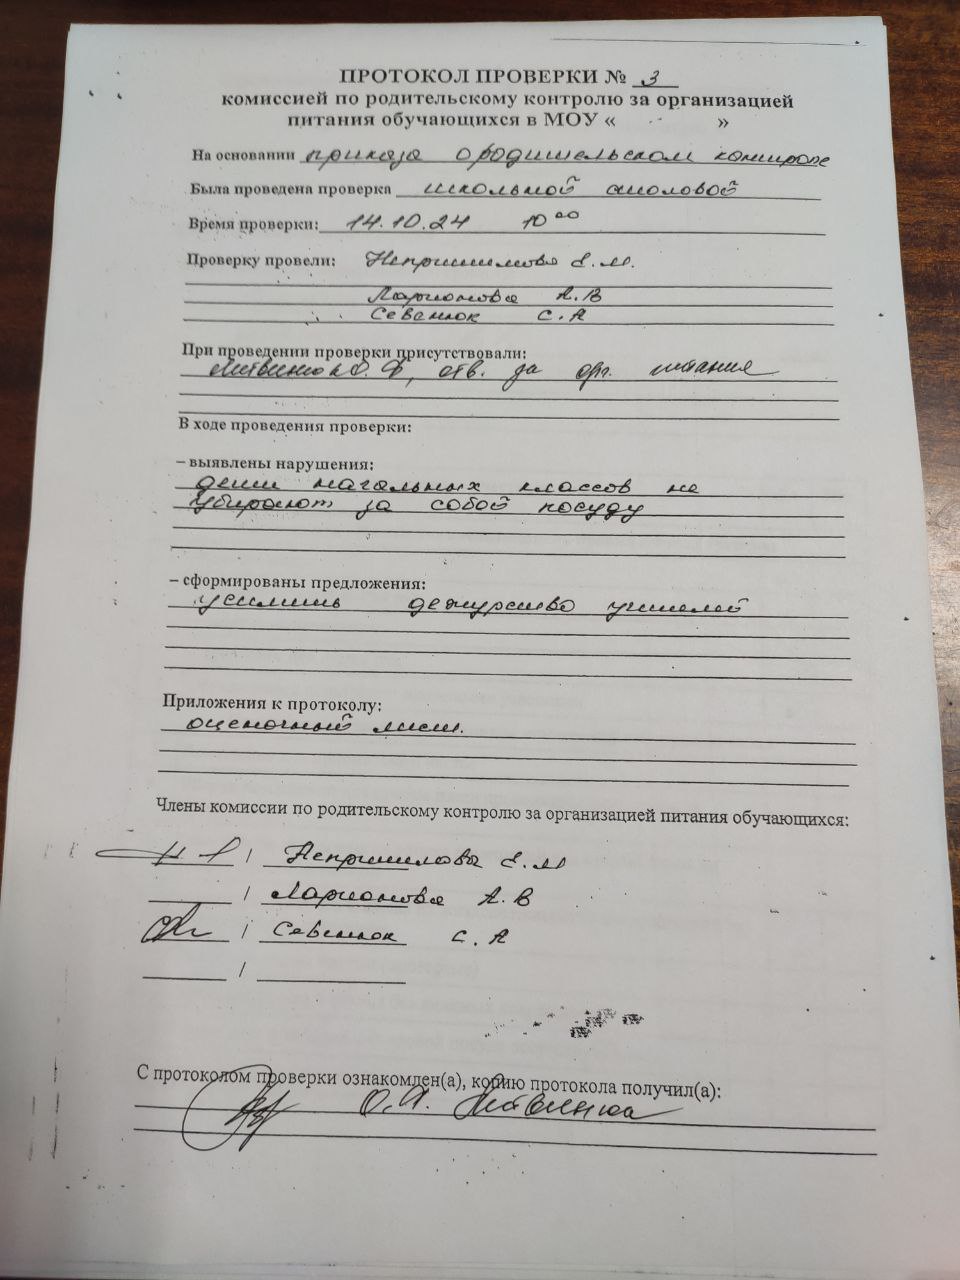 ПРОТОКОЛ ПРОВЕРКИ № 3
комиссией по родительскому контролю за организацией
питания обучающихся в МОУ « »
На основании приказа о родительском контроле
Была проведена проверка школьной столовой
Время проверки: 14.10.24 10 00
Проверку провели: Е.М.
Ларионова А.В
Севенюк С.А
При проведении проверки присутствовали:
отв. за орг. питания
В ходе проведения проверки:
– выявлены нарушения:
дети начальных классов не
убирают за собой посуду
– сформированы предложения:
усилить дежурство учителей
Приложения к протоколу:
оценочный лист.
Члены комиссии по родительскому контролю за организацией питания обучающихся:
/ Е.М
/ Ларионова А.В
/ Севенюк С.А
/
С протоколом проверки ознакомлен(а), копию протокола получил(а):